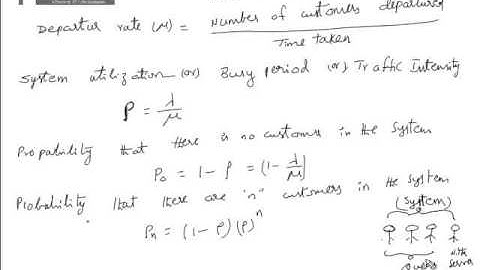 Departur rate (μ) = Number of customers departured / Time taken
System utilization (or) Busy period (or) Traffic Intensity
ρ = λ/μ
Propability that there is no customer in the system
P₀ = 1 - ρ = (1 - λ/μ)
Probability that there are "n" customers in the system
Pn = (1 - ρ) (ρ)ⁿ
(System)
with